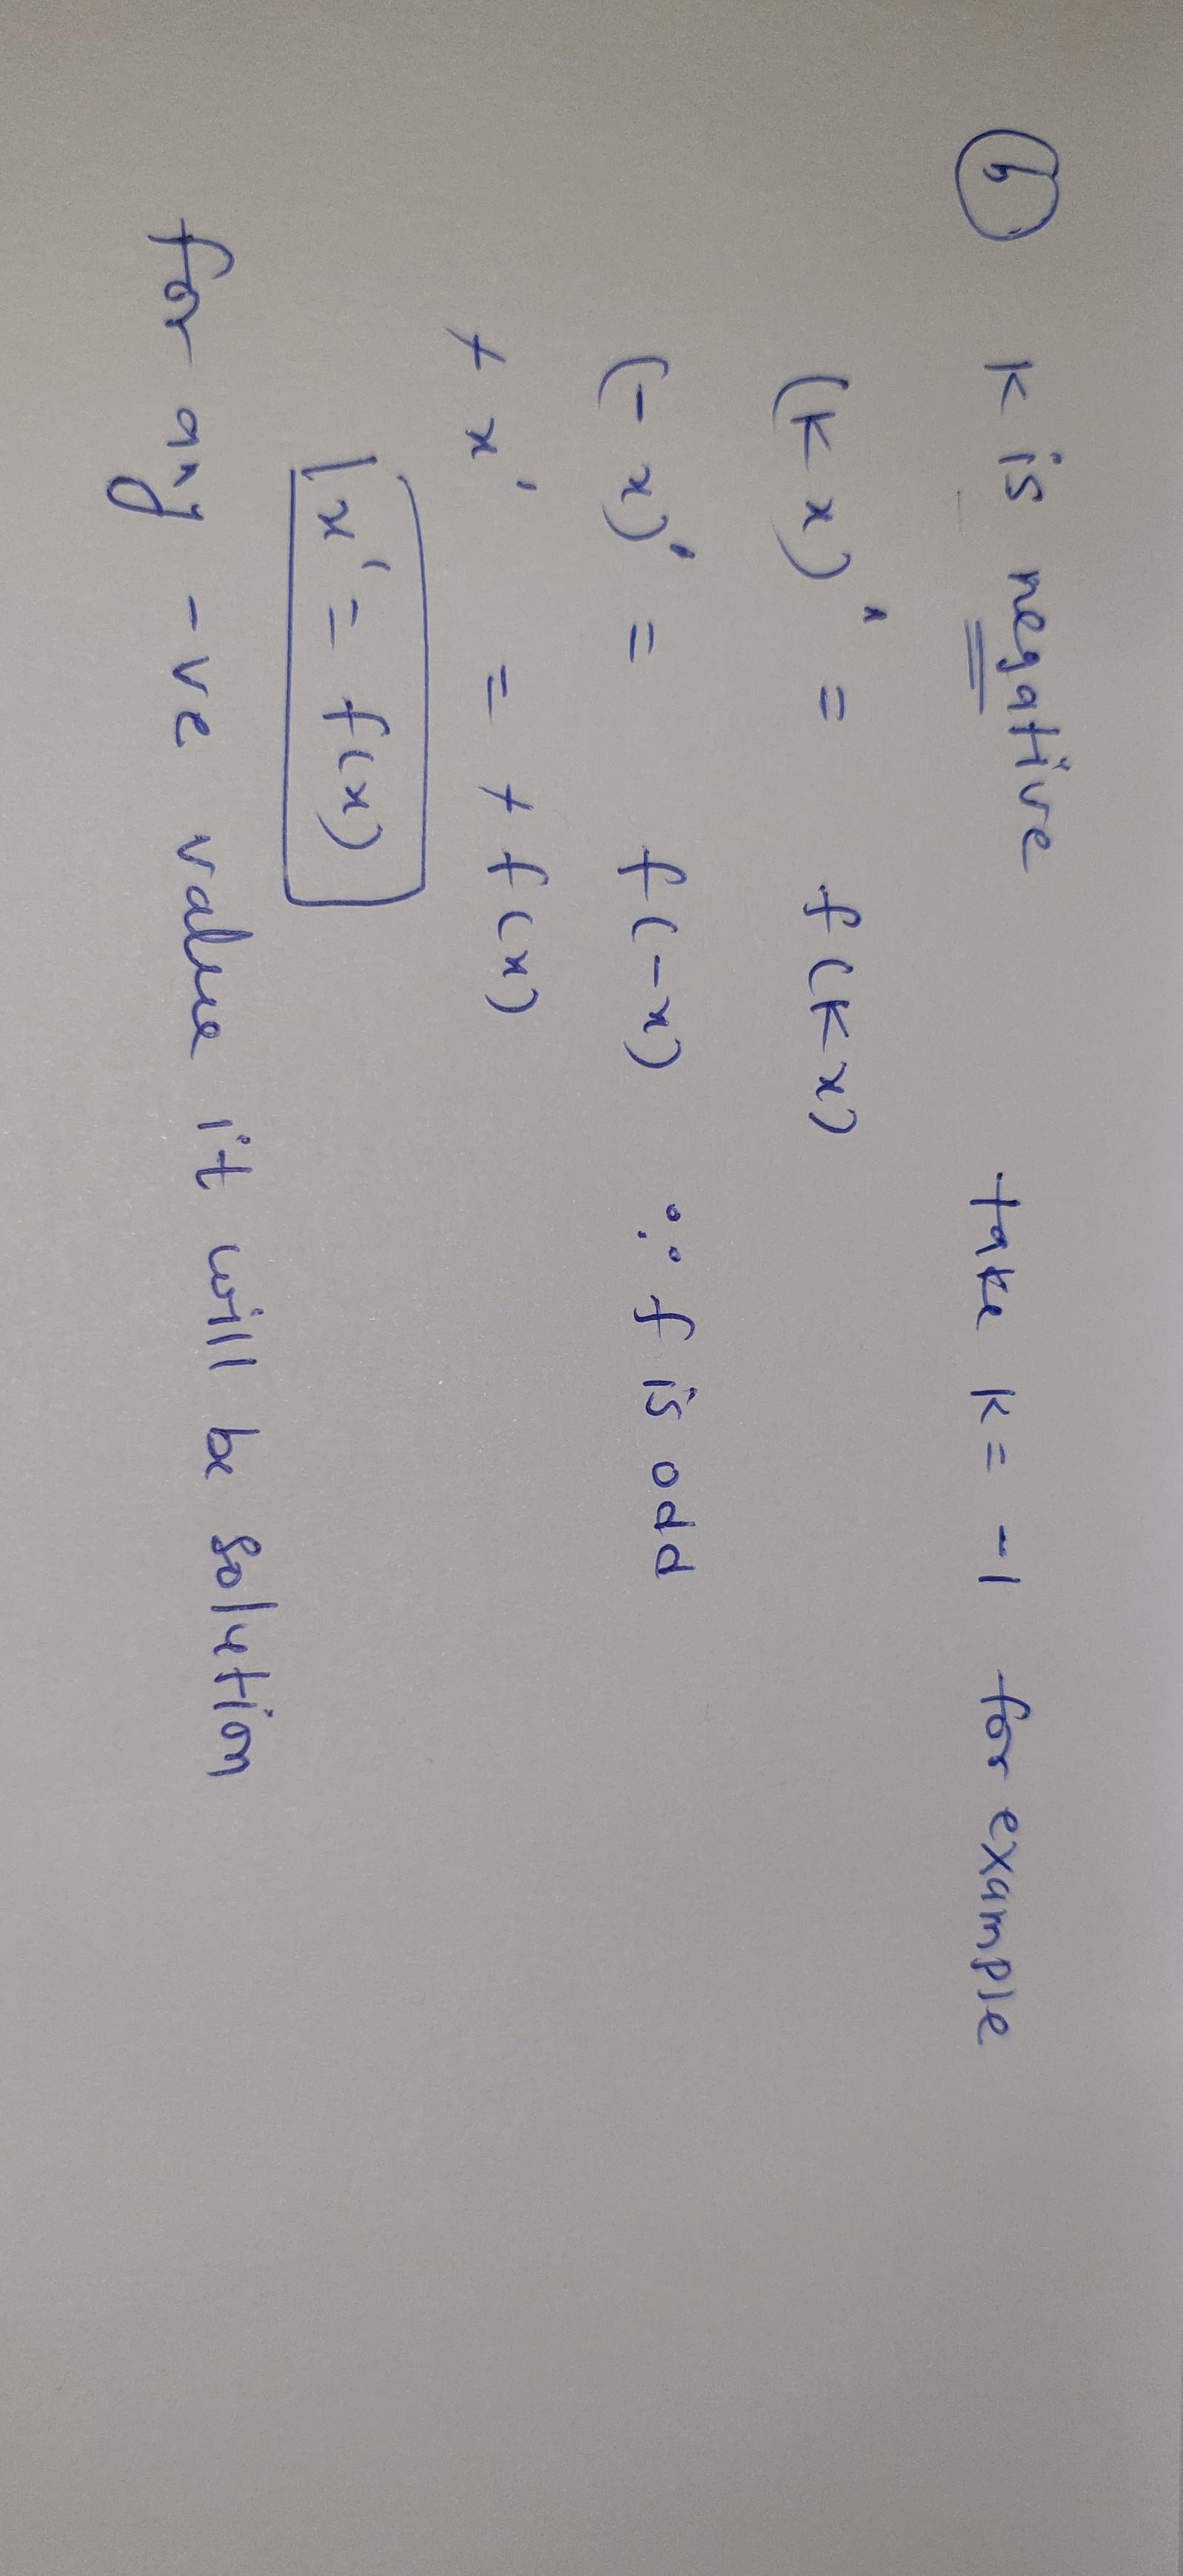 (b) K is negative take K = -1 for example
(Kx)' = f(Kx)
(-x)' = f(-x) ∵ f is odd
+ x' = + f(x)
x' = f(x)
for any -ve value it will be solution